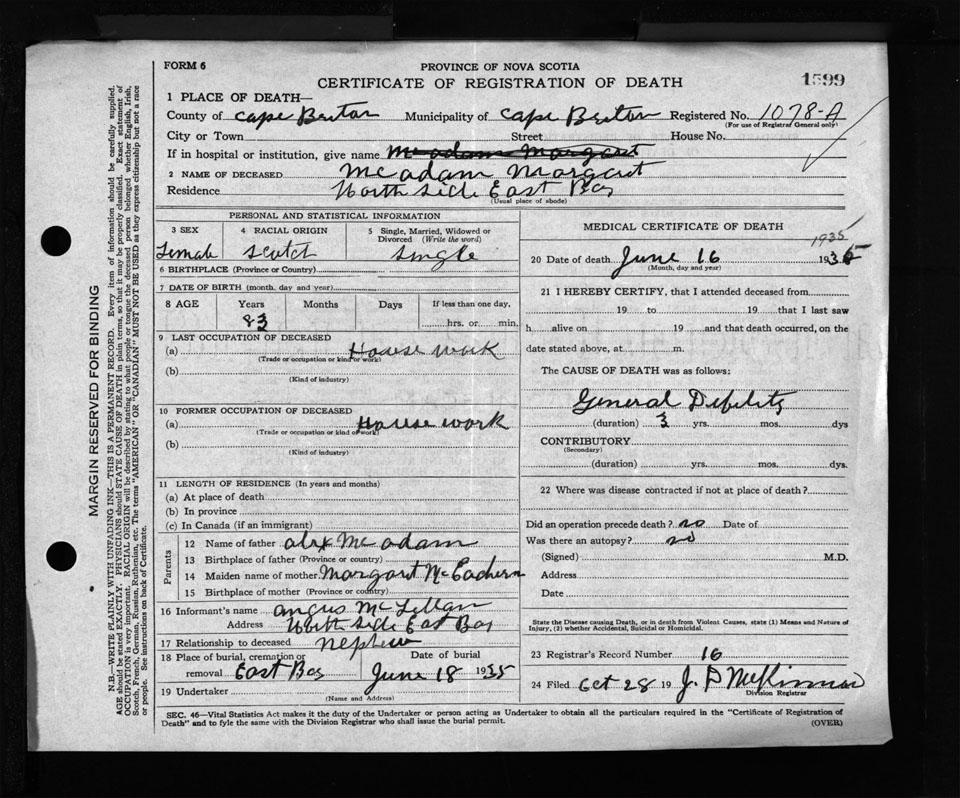 FORM 6
PROVINCE OF NOVA SCOTIA
CERTIFICATE OF REGISTRATION OF DEATH
1599
1 PLACE OF DEATH—
County of Cape Breton Municipality of Cape Breton Registered No. 1078-A
(For use of Registrar General only)
City or Town Street House No.
If in hospital or institution, give name McAdam Margaret
2 NAME OF DECEASED McAdam Margaret
Residence North Side East Bay
(Usual place of abode)
PERSONAL AND STATISTICAL INFORMATION
3 SEX 4 RACIAL ORIGIN 5 Single, Married, Widowed or Divorced (Write the word)
Female Scotch Single
6 BIRTHPLACE (Province or Country)
7 DATE OF BIRTH (month, day and year)
8 AGE Years Months Days If less than one day,
83 hrs. or min.
9 LAST OCCUPATION OF DECEASED
(a) House work
(Trade or occupation or kind of work)
(b)
(Kind of industry)
10 FORMER OCCUPATION OF DECEASED
(a) House work
(Trade or occupation or kind of work)
(b)
(Kind of industry)
11 LENGTH OF RESIDENCE (In years and months)
(a) At place of death
(b) In province
(c) In Canada (if an immigrant)
Parents
12 Name of father Alex McAdam
13 Birthplace of father (Province or country)
14 Maiden name of mother Margaret McEachern
15 Birthplace of mother (Province or country)
16 Informant's name Angus McLellan
Address North Side East Bay
17 Relationship to deceased nephew
18 Place of burial, cremation or Date of burial
removal East Bay June 18 1935
19 Undertaker
(Name and Address)
MEDICAL CERTIFICATE OF DEATH
1935
20 Date of death June 16 193
(Month, day and year)
21 I HEREBY CERTIFY, that I attended deceased from
19 to 19 that I last saw
h alive on 19 and that death occurred, on the
date stated above, at m.
The CAUSE OF DEATH was as follows:
General Debility
(duration) 3 yrs. mos. dys
CONTRIBUTORY
(Secondary)
(duration) yrs. mos. dys.
22 Where was disease contracted if not at place of death?
Did an operation precede death? no Date of
Was there an autopsy? no
(Signed) M.D.
Address
Date
State the Disease causing Death, or in death from Violent Causes, state (1) Means and Nature of
Injury, (2) whether Accidental, Suicidal or Homicidal.
23 Registrar's Record Number 16
24 Filed Oct 28 19 J. P. McKinnon
Division Registrar
SEC. 46—Vital Statistics Act makes it the duty of the Undertaker or person acting as Undertaker to obtain all the particulars required in the "Certificate of Registration of
Death" and to fyle the same with the Division Registrar who shall issue the burial permit.
(OVER)
MARGIN RESERVED FOR BINDING
N.B.—WRITE PLAINLY WITH UNFADING INK—THIS IS A PERMANENT RECORD. Every item of information should be carefully supplied.
AGE should be stated EXACTLY. PHYSICIANS should STATE CAUSE OF DEATH in plain terms, so that it may be properly classified. Exact statement of
OCCUPATION is very important. RACIAL ORIGIN will be described by stating to what people or tongue the deceased person belonged whether English, Irish,
Scotch, French, German, Russian, Ruthenian, etc. The terms "AMERICAN" OR "CANADIAN" MUST NOT BE USED as they express citizenship but not a race
or people. See instructions on back of Certificate.